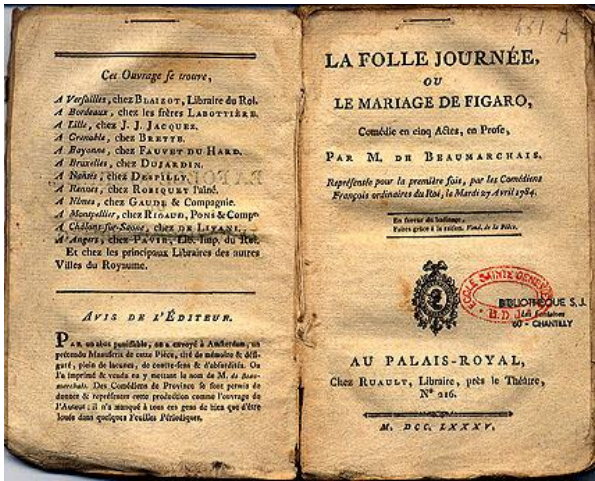 Cet Ouvrage se trouve,
A Versailles, chez BLAIZOT, Libraire du Roi.
A Bordeaux, chez les frères LABOTTIÈRE.
A Lille, chez J. J. JACQUEZ.
A Grenoble, chez BRETTE.
A Bayonne, chez FAUVET DU HARD.
A Bruxelles, chez DUJARDIN.
A Nantes, chez DESPILLY.
A Rennes, chez ROBIQUET l'aîné.
A Nîmes, chez GAUDE & Compagnie.
A Montpellier, chez RIGAUD, PONS & Compe
A Châlons-sur-Saone, chez DE LIVANI.
A Angers, chez PAVIE, Lib. Imp. du Roi.
Et chez les principaux Libraires des autres
Villes du Royaume.
AVIS DE L'ÉDITEUR.
PAR un abus punissable, on a envoyé à Amsterdam, un
prétendu Manuscrit de cette Pièce, tiré de mémoire & défi-
guré, plein de lacunes, de contre-sens & d'absurdités. On
l'a imprimé & vendu en y mettant le nom de M. de Beau-
marchais. Des Comédiens de Province se sont permis de
donner & représenter cette production comme l'ouvrage de
l'Auteur; il n'a manqué à tous ces gens de bien que d'être
loués dans quelques Feuilles Périodiques.
451 A
LA FOLLE JOURNÉE,
OU
LE MARIAGE DE FIGARO,
Comédie en cinq Actes, en Prose,
PAR M. DE BEAUMARCHAIS.
Représentée pour la première fois, par les Comédiens
François ordinaires du Roi, le Mardi 27 Avril 1784.
En faveur du badinage,
Faites grâce à la raison. Vaud. de la Pièce.
ECOLE SAINTE GENEV
BIBLIOTHEQUE S. J.
Les Fontaines
60 - CHANTILLY
AU PALAIS-ROYAL,
Chez RUAULT, Libraire, près le Théâtre,
N° 216.
M. DCC. LXXXV.